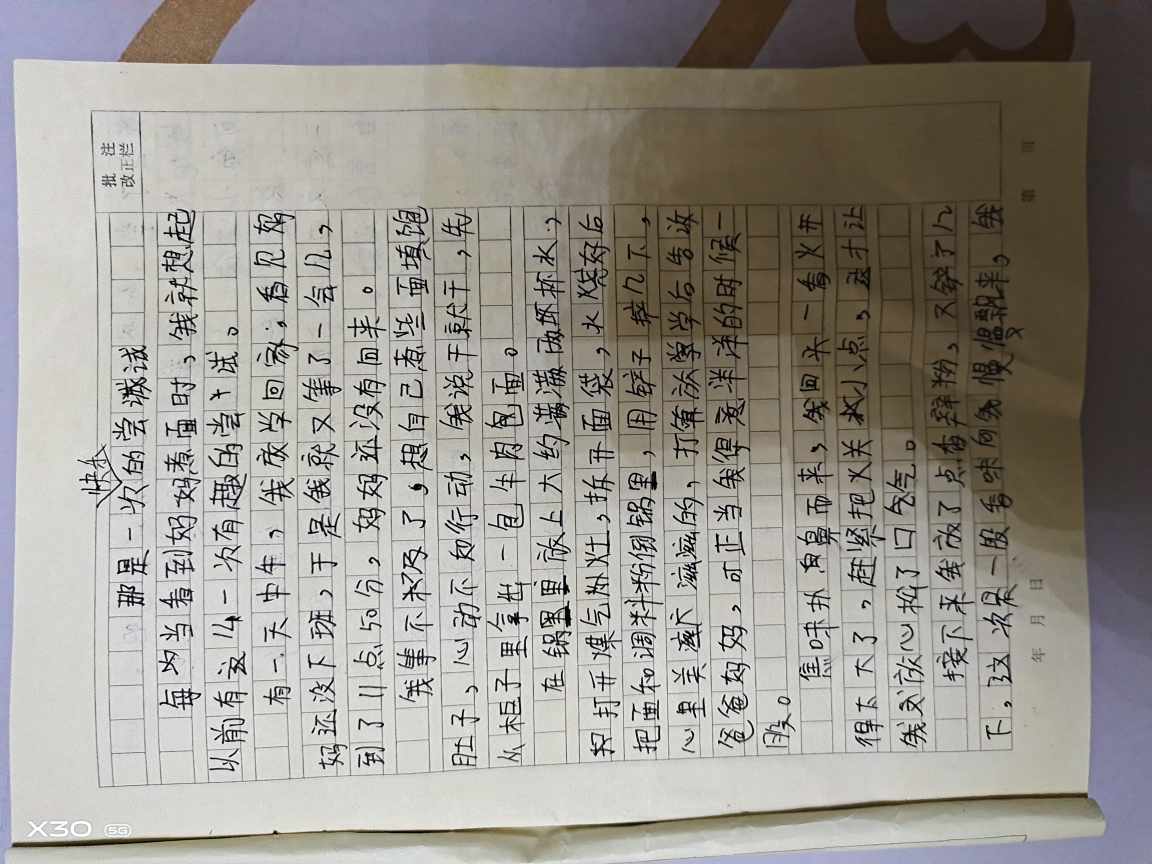 批 注
改正栏
快乐
那是一次的尝试
每当看到妈妈煮面时，我就想起
以前有这么一次有趣的尝试。
有一天中午，我放学回家，看见妈
妈还没下班，于是我就又等了一会儿，
到了11点50分，妈妈还没有回来。
我等不及了，想自己煮些面填饱
肚子，心动不如行动，我说干就干，先
从柜子里拿出一包牛肉包面。
在锅里放上大约满满两杯水，
打开煤气灶，拆开面袋，水烧好后
把面和调料粉倒锅里，用铲子拌几下，
心里美滋滋的，打算放学后告诉
爸爸妈妈，可正当我得意洋洋的时候一
股。
焦味扑鼻而来，我回头一看火开
得太大了，赶紧把火关小点，这才让
我放心松了口气。
接下来我放了点香辣粉，又铲了几
下，这次是一股香味向我慢慢飘来。我
年 月 日
第 页
X30 5G